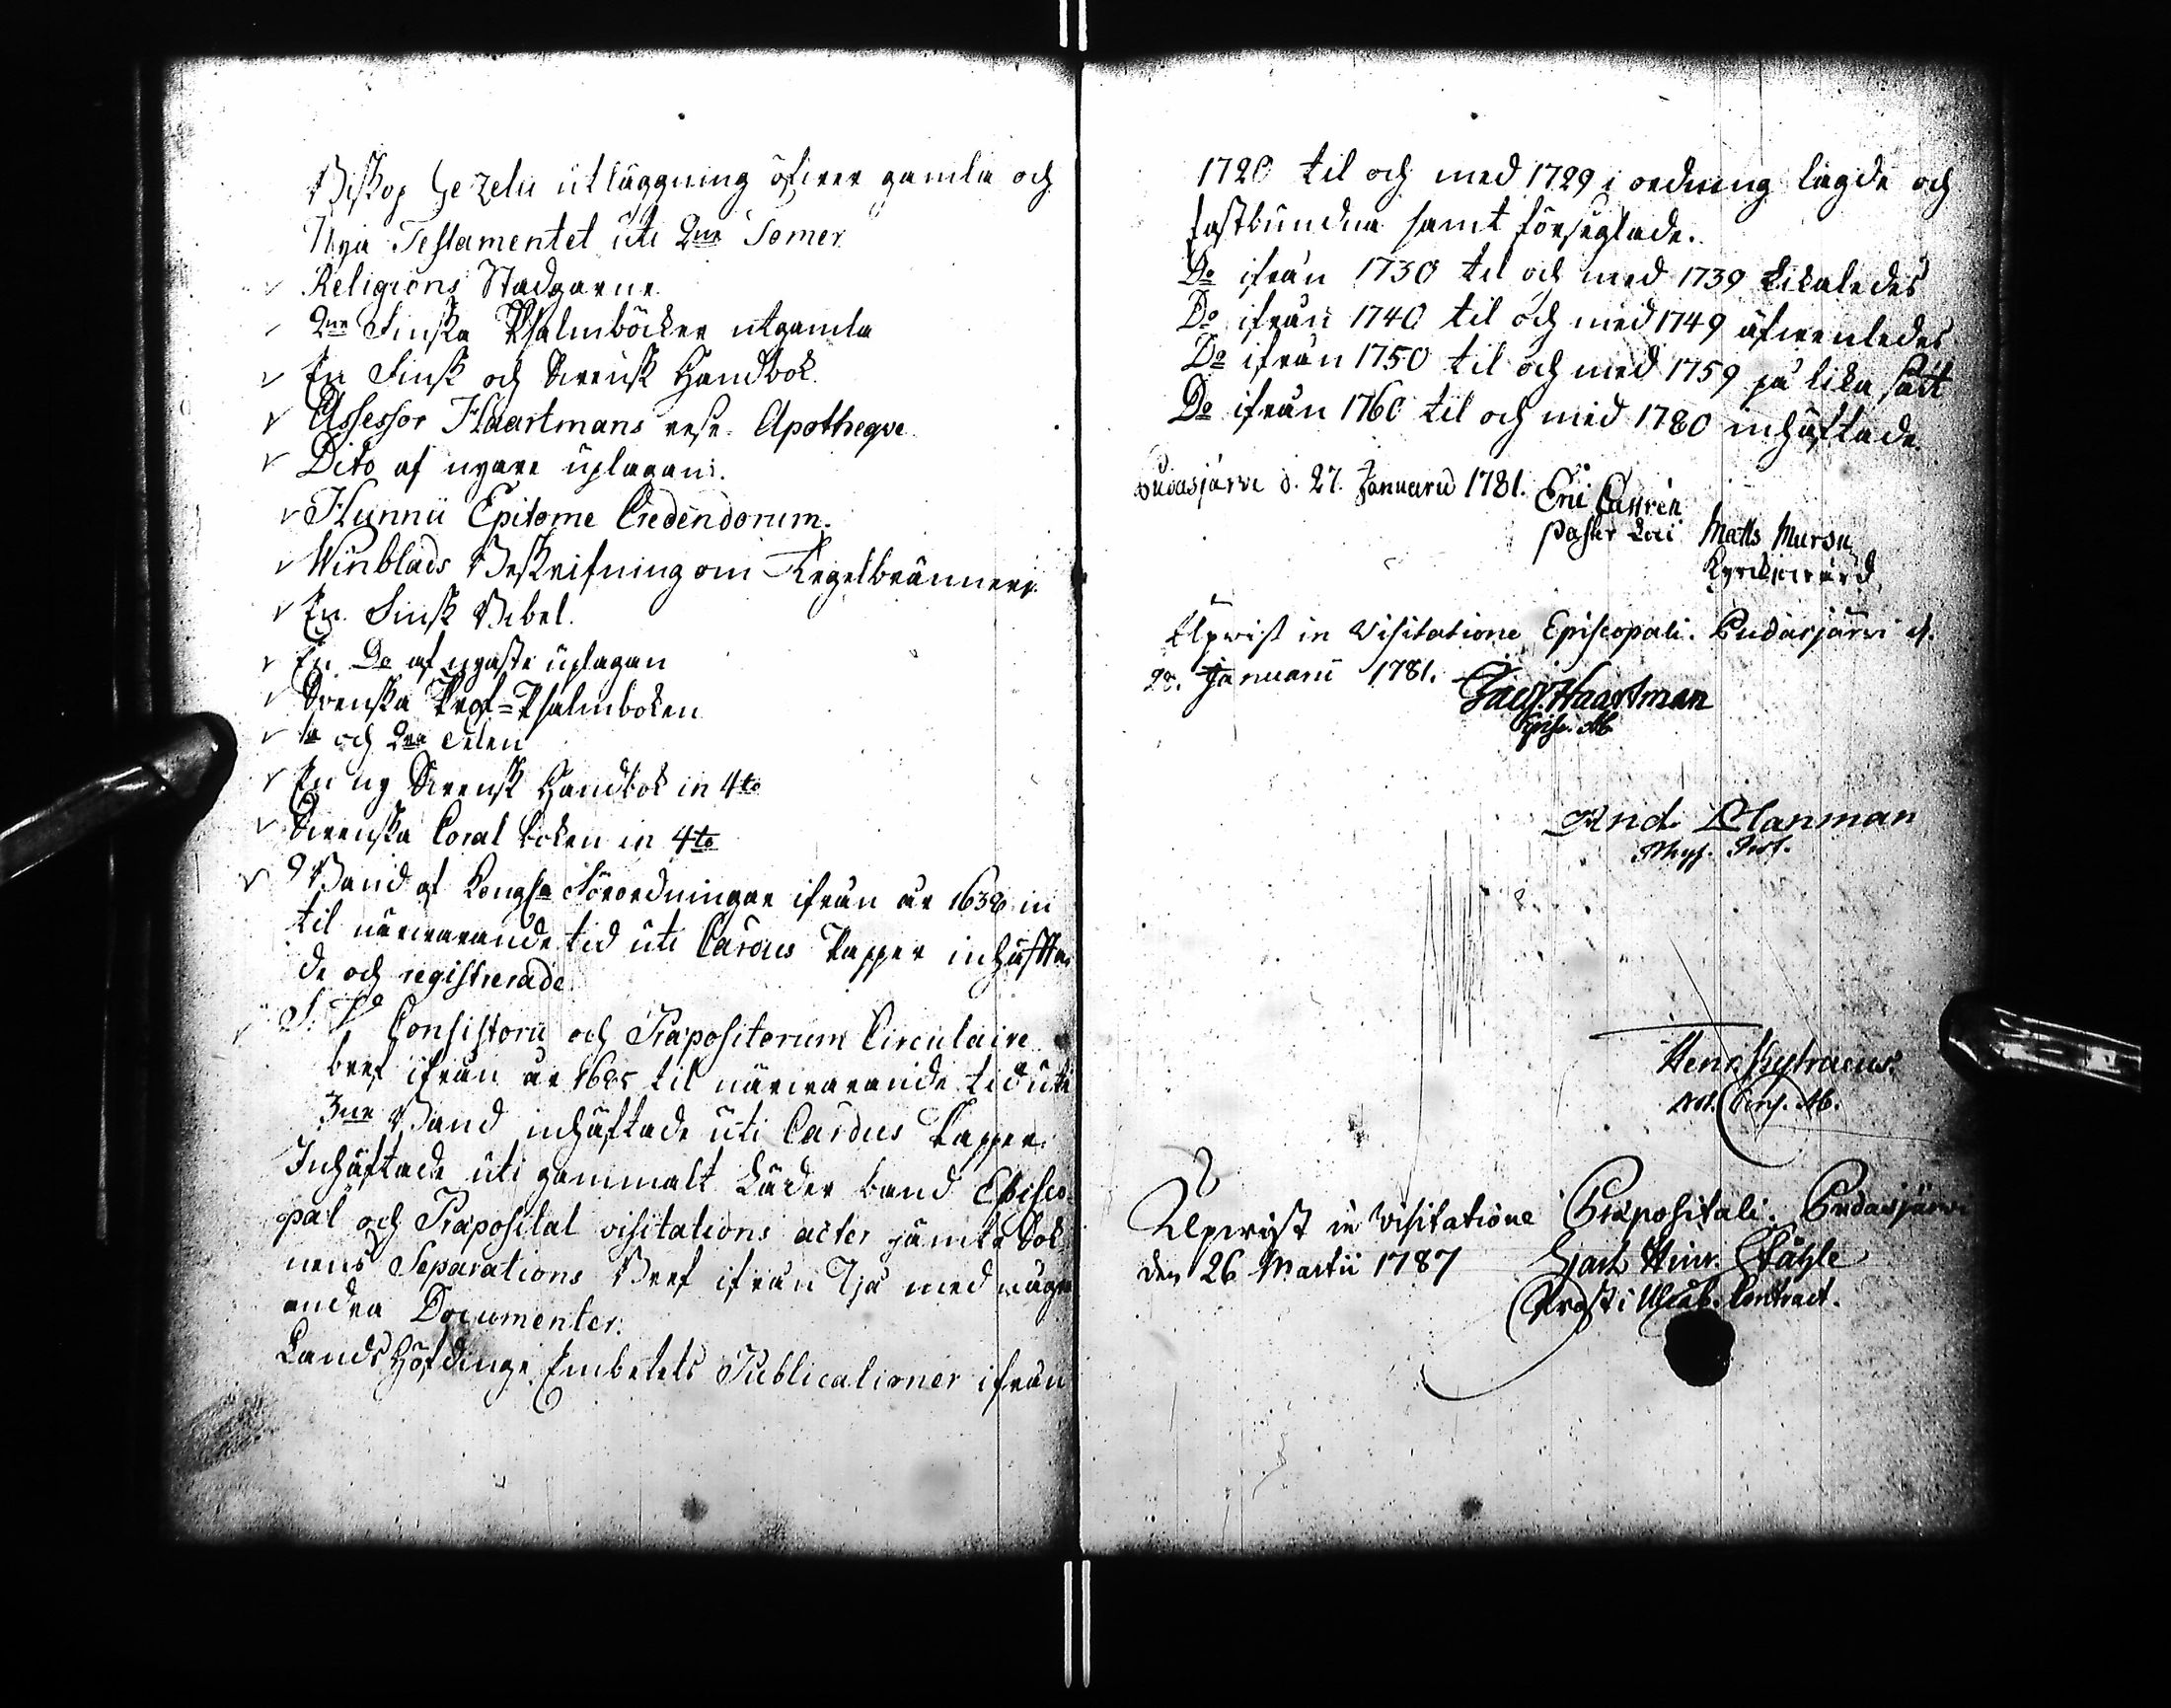 Biskop Gezelii utläggning öfwer gamla och
Nya Testamentet uti 2ne Tomer
Religions Stadgarne
2ne Finska Psalmböcker utgamla
En Finsk och Swensk Handbok
Assessor Haartmans rese Apotheqve
Dito af nyare uplagan
Hunnii Epitome Credendorum.
Winblads Beskrifning om Tegelbränneri
En Finsk Bibel.
En Do af nyaste uplagan
Svenska Prof=Psalmboken
1a och 2dra delen
En ny Swensk Handbok in 4to
Swenska Coral boken in 4to
9 Band af Kongla Förordningar ifrån år 1632 in
til närwarande tid uti Cardus Papper inhäfta
de och registrerade
S. V. Consistorii och Præpositorum Circulaire
bref ifrån år 1685 til närwarande tid uti
3ne Band inhäftade uti Cardus Papper
Inhäftade uti gammalt Läder band Episco
pal och Præposital visitations acter jämte Sok
nens Separations Bref ifrån Ijå med några
andra Documenter.
Landshöfdinge Embetets Publicationer ifrån
1720 til och med 1729 i ordning lagde och
fastbundna samt förseglade.
Do ifrån 1730 til och med 1739 Likaledes
Do ifrån 1740 til och med 1749 äfwenledes
Do ifrån 1750 til och med 1759 på lika sätt
Do ifrån 1760 til och med 1780 inhäftade
Pudasjärvi d. 27. Januarii 1781. Eric Castrén
Pastor Loci Matts Mursu
Kyrckiowärd
Upwist in Visitatione Episcopali. Pudasjärvi d.
28. Januarii 1781. Jac. Haartman
Episc. Ab.
And. Planman
Phys. Prof.
Henr.
Not. Cons. Ab.
Upwist in visitatione Præpositali. Pudasjärvi
den 26 Martii 1787 Zach. Henr. Ståhle
Prost i Contract.